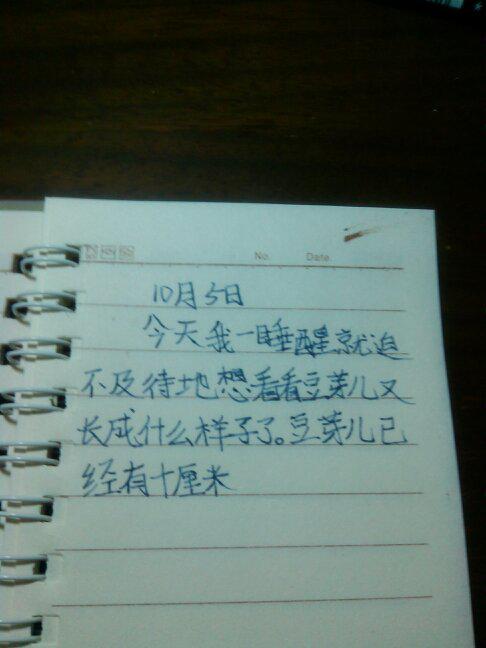 No. Date.
10月5日
今天我一睡醒,就迫
不及待地想看看豆芽儿又
长成什么样子了。豆芽儿已
经有十厘米